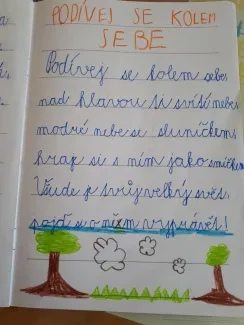 PODÍVEJ SE KOLEM
SEBE
Podívej se kolem sebe,
nad hlavou ti svítí nebe,
modré nebe se sluníčkem,
hraj si s ním jako s míčkem.
Všude je svůj velký svět,
pojď si o něm vyprávět!